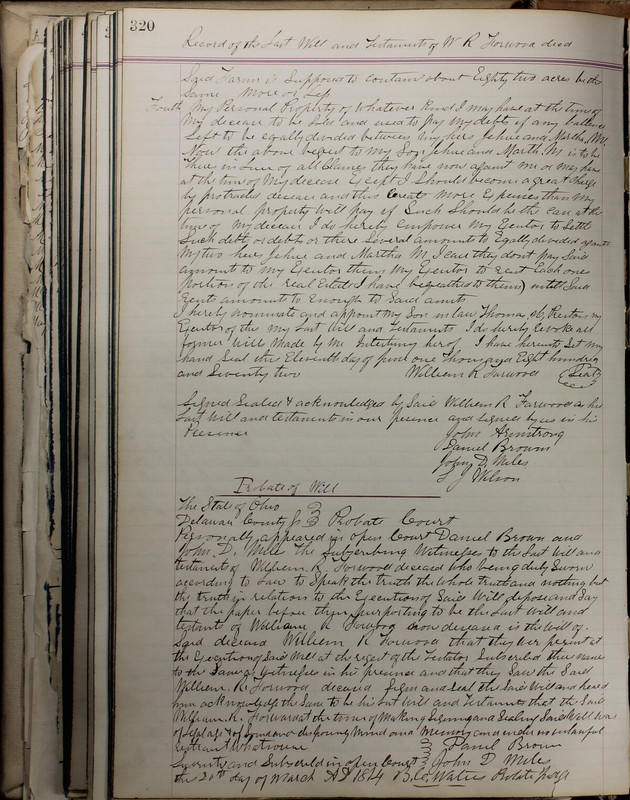 320
Record of the Last Will and Testament of W R Forwood decd
Said Farm is Supposed to contain about Eighty two acres be the
Same More or Less
Fourth My Personal Property of Whatever Kind I may have at the time of
My decease to be Sold and used to pay my debts if any ballence
Left to be equally divided between my heirs Jehue and Martha M.
Now the above bequest to my Son Jehue and Martha M is to be
theirs in Lieu of all Claims they have now against me or may have
at the time of My decease Except I Should become a great Charge
by protracted disease and thus Create More Expenses than My
personal property Will pay if Such Should be the Case at the
time of my decease I do hereby empower My Exentor to Settle
Such debt or debts or there Several amounts to Eqally divided against
My two heirs Jehue and Martha M, I case they dont pay Said
amount to My Exentor then My Exentor to rent Each ones
portion of the real Estate I have bequeathed to them) untill Said
Rents amount to Enough to Said amt
I hereby nominate and appoint My Son in law Thomas M, my
Exentor of this my Last Will and Testament I do hereby revoke all
former Wills Made by Me I have hereunto Set my
hand Seal this Eleventh day of one Thousand Eight hundred
and Seventy two William R Forwood (Seal)
Signed Sealed & acknowledged by Said William R. Forwood as his
Last Will and testament in our presence and Signed by us in his
Presence John Armstrong
Daniel Brown
John D. Miles
Wilson
Probate of Will
The State of Ohio
Delaware County ss Probate Court
Personally appeared in open Court Daniel Brown and
John. D. Miles the Subscribing Witnesses to the Last Will and
testament of William. R. Forwood deceased Who being duly Sworn
according to Law to Speak the truth the Whole truth and nothing but
the truth in relation to the Execution of Said Will depose and Say
that the paper before them purporting to be the Last Will and
testant of William R Forwood now deceased is the Will of
Said deceased William R Forwood that they Wer present at
the Execution of Said Will at the reqest of the Testator Subscribed there names
to the Same as Witnesses in his presence and that they Saw the Said
William. R. Forwood deceased Sign and Seal the Said Will and heard
him acknowledge the Same to be his Last Will and Testament that the Said
William R. Forward at the time of Making Signing and Sealing Said Will was
of Legal age & of Sound and disposing Mind and Memory and under no unlawful
restraint Whatsoever Daniel Brown
Sworn to and Subscribed in open Court John D Miles
this 20th day of March AD 1874 B. C. Waters Probate Judge